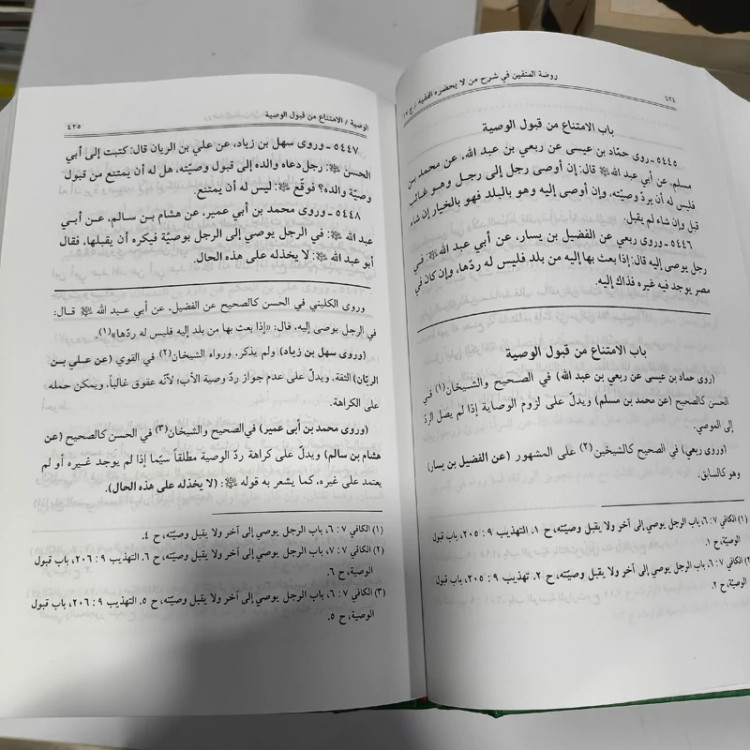 ٤٢٤
روضة المتقين في شرح من لا يحضره الفقيه / ج ١٢
باب الامتناع من قبول الوصية
٥٤٤٥ ـ روى حمّاد بن عيسى عن ربعي بن عبد الله، عن محمد بن
مسلم، عن أبي عبد الله ﷺ قال: إن أوصى رجل إلى رجل وهو غائب
فليس له أن يردّ وصيّته، وإن أوصى إليه وهو بالبلد فهو بالخيار إن شاء
قبل وإن شاء لم يقبل.
٥٤٤٦ ـ وروى ربعي عن الفضيل بن يسار، عن أبي عبد الله ﷺ: في
رجل يوصى إليه قال: إذا بعث بها إليه من بلد فليس له ردّها، وإن كان في
مصر يوجد فيه غيره فذاك إليه.
باب الامتناع من قبول الوصية
(روى حماد بن عيسى عن ربعي بن عبد الله) في الصحيح والشيخان(١) في
الحسن كالصحيح (عن محمد بن مسلم) ويدلّ على لزوم الوصاية إذا لم يصل الردّ
إلى الموصي.
(وروى ربعي) في الصحيح كالشيخين(٢) على المشهور (عن الفضيل بن يسار)
وهو كالسابق.
(١) الكافي ٧: ٦، باب الرجل يوصي إلى آخر ولا يقبل وصيّته، ح ١. التهذيب ٩: ٢٠٥، باب قبول
الوصيّة، ح ١.
الكافي ٧: ٦، باب الرجل يوصي إلى آخر ولا يقبل وصيّته، ح ٢. تهذيب ٩: ٢٠٥، باب قبول
الوصيّة، ح ٢.
الوصية / الامتناع من قبول الوصية
٤٢٥
٥٤٤٧ ـ وروى سهل بن زياد، عن علي بن الريان قال: كتبت إلى أبي
الحسن ﷺ: رجل دعاه والده إلى قبول وصيّته، هل له أن يمتنع من قبول
وصيّة والده؟ فوقّع ﷺ: ليس له أن يمتنع.
٥٤٤٨ ـ وروى محمد بن أبي عمير، عن هشام بن سالم، عن أبي
عبد الله ﷺ: في الرجل يوصي إلى الرجل بوصيّة فيكره أن يقبلها، فقال
أبو عبد الله ﷺ: لا يخذله على هذه الحال.
وروى الكليني في الحسن كالصحيح عن الفضيل، عن أبي عبد الله ﷺ قال:
في الرجل يوصى إليه، قال: «إذا بعث بها من بلد إليه فليس له ردّها»(١).
(وروى سهل بن زياد) ولم يذكر، ورواه الشيخان(٢) في القوي (عن علي بن
الريّان) الثقة، ويدلّ على عدم جواز ردّ وصية الأب؛ لأنّه عقوق غالباً، ويمكن حمله
على الكراهة.
(وروى محمد بن أبي عمير) في الصحيح والشيخان(٣) في الحسن كالصحيح (عن
هشام بن سالم) ويدلّ على كراهة ردّ الوصية مطلقاً سيّما إذا لم يوجد غيره أو لم
يعتمد على غيره، كما يشعر به قوله ﷺ: (لا يخذله على هذه الحال).
(١) الكافي ٧: ٦، باب الرجل يوصي إلى آخر ولا يقبل وصيّته، ح ٤.
(٢) الكافي ٧: ٧، باب الرجل يوصي إلى آخر ولا يقبل وصيّته، ح ٦. التهذيب ٩: ٢٠٦، باب قبول
الوصية، ح ٦.
(٣) الكافي ٧: ٦، باب الرجل يوصي إلى آخر ولا يقبل وصيّته، ح ٥. التهذيب ٩: ٢٠٦، باب قبول
الوصية، ح ٥.